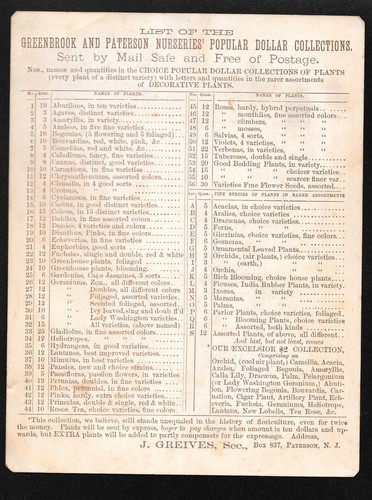 LIST OF THE
GREENBROOK AND PATERSON NURSERIES' POPULAR DOLLAR COLLECTIONS.
Sent by Mail Safe and Free of Postage.
Nos., names and quantities in the CHOICE POPULAR DOLLAR COLLECTIONS OF PLANTS
(every plant of a distinct variety) with letters and quantities in the rarer assortments
of DECORATIVE PLANTS.
Nos. Quan. NAMES OF PLANTS.
1 10 Abutilons, in ten varieties
2 3 Agaves, distinct varieties
3 3 Amaryllis, in variety
4 5 Azaleas, in five fine sorts
5 10 Begonias, (5 flowering and 5 foliaged)
6 10 Bouvardias, red, white, pink, &c
7 5 Camellias, red and white, &c
8 4 Caladiums, fancy, fine varieties
9 8 Cannas, distinct, good varieties
10 10 Carnations, in fine varieties
11 12 Chrysanthemums, assorted colors
12 4 Clematis, in 4 good sorts
13 6 Crotons, " "
14 8 Cyclamens, in fine varieties
15 10 Cactus, in good distinct varieties
16 15 Coleus, in 15 distinct varieties
17 10 Dahlias, in fine assorted colors
18 12 Daisies, 4 varieties and colors
19 10 Dianthus, Pinks, in fine colors
20 6 Echeverias, in fine varieties
21 4 Euphorbias, good sorts
22 12 Fuchsias, single and double, red & white
23 10 Greenhouse plants, foliaged
24 10 Greenhouse plants, blooming
25 6 Gardenias, Cape Jessamines, 3 sorts
26 12 Geraniums, Zon., all different colors
27 12 " Doubles, all different colors
28 12 " Foliaged, assorted varieties
29 12 " Scented foliaged, assorted
30 10 " Ivy leaved, sing and doub fl'd
31 6 " Lady Washington varieties
32 15 " All varieties, (above named)
33 25 Gladiolus, in fine assorted colors
34 12 Heliotropes, " "
35 6 Hydrangeas, in good varieties
36 12 Lantanas, best improved varieties
37 10 Mimulus, in best varieties
38 12 Panzies, new and choice strains
39 5 Passifloreas, passion flowers, in varieties
40 12 Petunias, doubles, in fine varieties
41 10 Phlox, perennial, in fine colors
42 12 Pinks, hardy, extra choice varieties
43 12 Primulas, double & single, red & white
44 10 Roses, Tea, choice varieties, fine colors
Nos. Quan. NAMES OF PLANTS.
45 12 Roses, hardy, hybrid perpetuals
46 12 " monthlies, fine assorted colors
47 12 " climbers, " "
48 6 " mosses, " "
49 12 Salvias, 4 sorts, " "
50 12 Violets, 4 varieties, " "
51 22 Verbenas, in varieties
52 15 Tuberoses, double and single
53 20 Good Bedding Plants, in variety
54 15 " " choicer varieties
55 10 " " scarcer finer var.
56 30 Varieties Fine Flower Seeds, assorted
Letters Quan. FINE SPECIES OF PLANTS IN RARER ASSORTMENTS
A 5 Acacias, in choice varieties
B 4 Azalias, choice varieties
C 4 Dracænas, choice varieties
D 5 Ferns, " "
E 5 Gloxinias, choice varieties, fine colors
F 5 Gesneras, " "
G 5 Ornamental Leaved Plants
H 2 Orchids, (air plants,) choice varieties
I 3 " (earth,) " "
J 4 Orchis, " "
K 5 Rich Blooming, choice house plants
L 4 Ficuses, India Rubber Plants, in variety
M 3 Ixoras, in variety
N 5 Marantas, " "
O 5 Palms, " "
P 6 Parlor Plants, choice varieties, foliaged
Q 6 " Blooming Plants, choice varieties
R 6 " Assorted, both kinds
S 12 Assorted Plants, of above, all different
And last, but not least, comes
OUR EXCELSIOR $2 COLLECTION,
Comprising an
Orchid, (cool air plant,) Camellia, Acacia,
Azalea, Foliaged Begonia, Amaryllis,
Calla Lily, Dracæna, Palm, Pelargonium
(or Lady Washington Geranium,) Abuti-
lon, Flowering Begonia, Bouvardia, Car-
nation, Cigar Plant, Artillery Plant, Ech-
everia, Fuchsia, Geraniums, Heliotrope,
Lantana, New Lobelia, Ten Rose, &c.
"This collection, we believe, still stands unequaled in the history of floriculture, even for twice
the money. Plants will be sent by express, buyer to pay charges when amount is ten dollars and up-
wards, but EXTRA plants will be added to partly compensate for the expressage. Address,
J. GREIVES, Sec., Box 837, PATERSON, N. J.